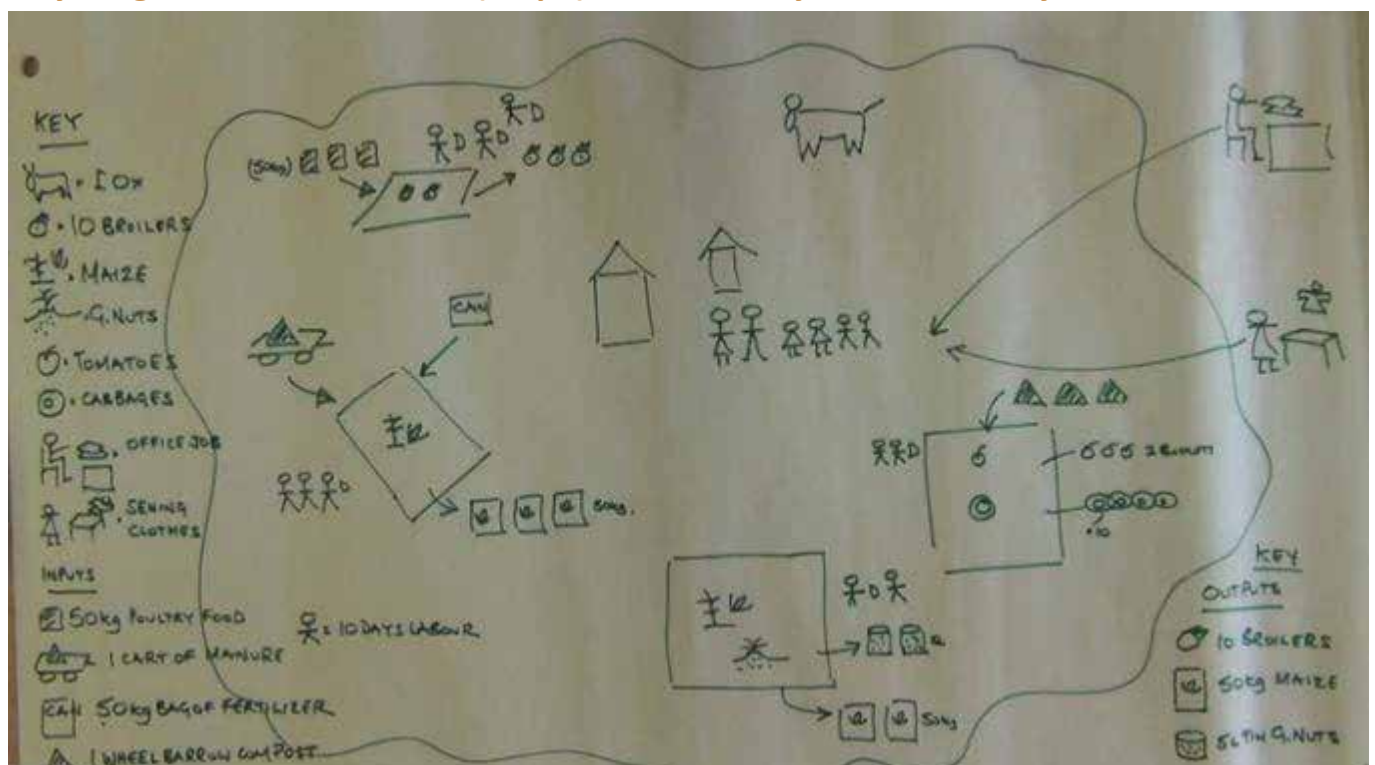 KEY
= 1 OX
= 10 BROILERS
= MAIZE
= G.NUTS
= TOMATOES
= CABBAGES
= OFFICE JOB
= SEWING
CLOTHES
INPUTS
50kg POULTRY FOOD
1 CART OF MANURE
CAN 50kg BAG OF FERTILIZER
1 WHEELBARROW COMPOST
= 10 DAYS LABOUR
(50kg)
D
D D
CAN
D
50kg.
D
D
50kg
KEY
OUTPUTS
10 BROILERS
50kg MAIZE
5L TIN G.NUTS